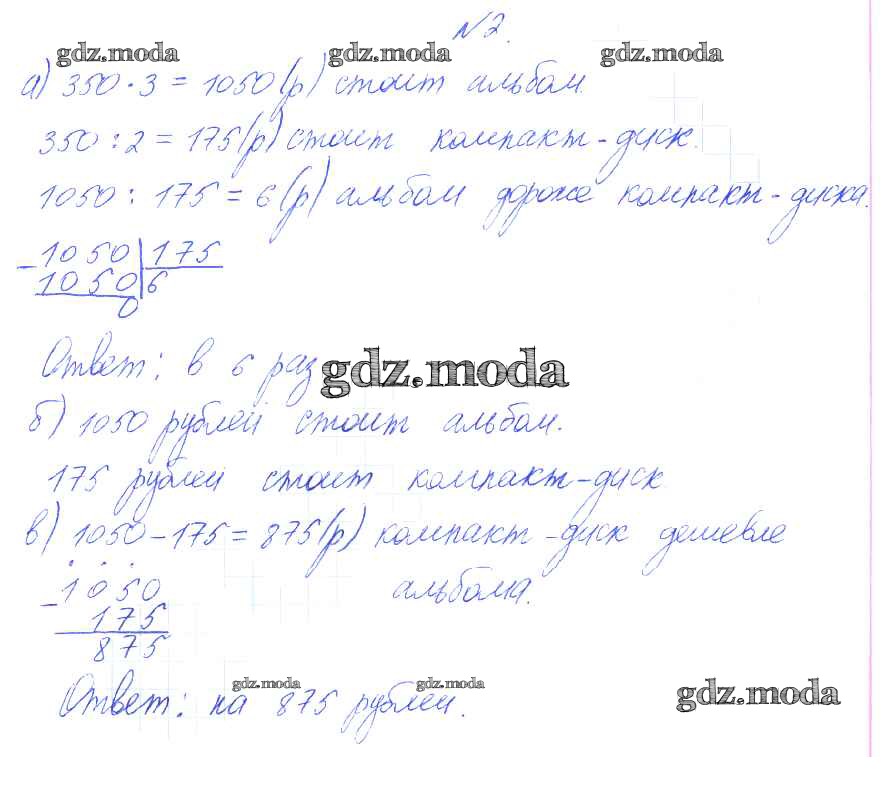 N2.
gdz.moda gdz.moda gdz.moda
а) 350 · 3 = 1050 (р) стоит альбом.
350 : 2 = 175 (р) стоит компакт-диск.
1050 : 175 = 6 (р) альбом дороже компакт-диска.
- 1050 | 175
1050 6
0
Ответ: в 6 раз
gdz.moda
б) 1050 рублей стоит альбом.
175 рублей стоит компакт-диск
в) 1050 - 175 = 875 (р) компакт-диск дешевле
альбома.
- 1050
175
875
gdz.moda gdz.moda gdz.moda
Ответ: на 875 рублей.